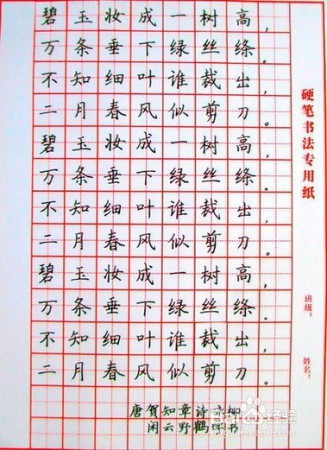 碧玉妆成一树高，
万条垂下绿丝绦。
不知细叶谁裁出，
二月春风似剪刀。
碧玉妆成一树高，
万条垂下绿丝绦。
不知细叶谁裁出，
二月春风似剪刀。
碧玉妆成一树高，
万条垂下绿丝绦。
不知细叶谁裁出，
二月春风似剪刀。
唐贺知章诗咏柳
闲云野鹤 书
硬笔书法专用纸
班级：
姓名：
经验